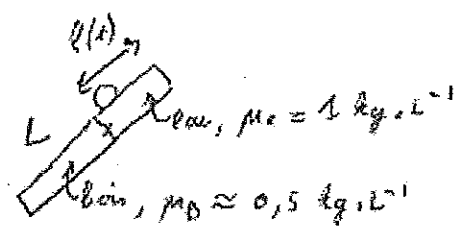 l(t)
L
eau, μe = 1 kg.L⁻¹
bois, μB ≈ 0,5 kg.L⁻¹